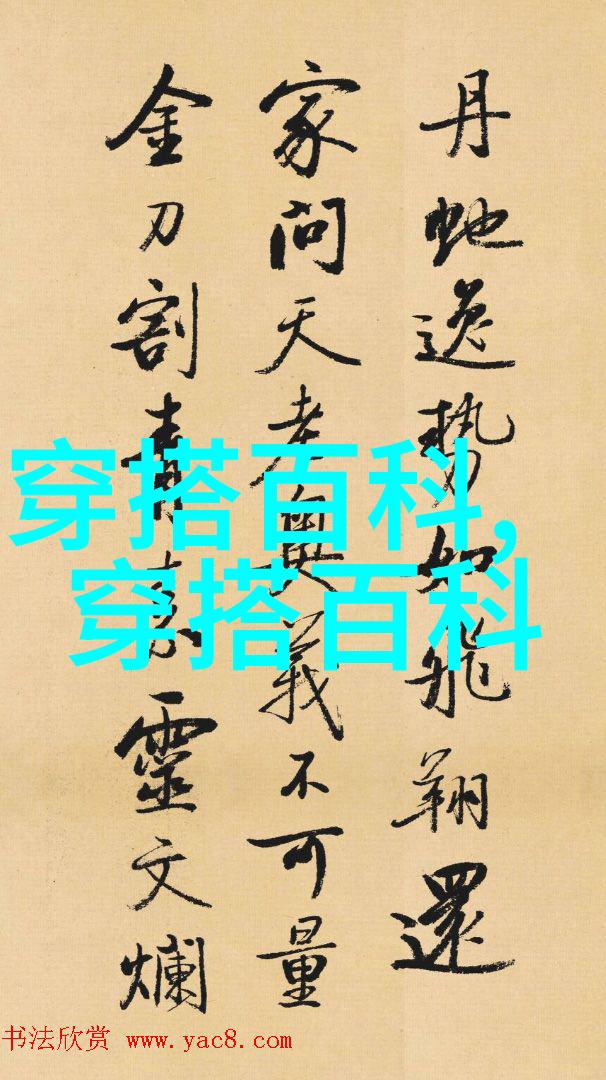 丹虵逸勢如飛翔還
家問天老奧義不可量
金刀割青素靈文爛
穿搭百科,
穿搭百科
书法欣赏 www.yac8.com